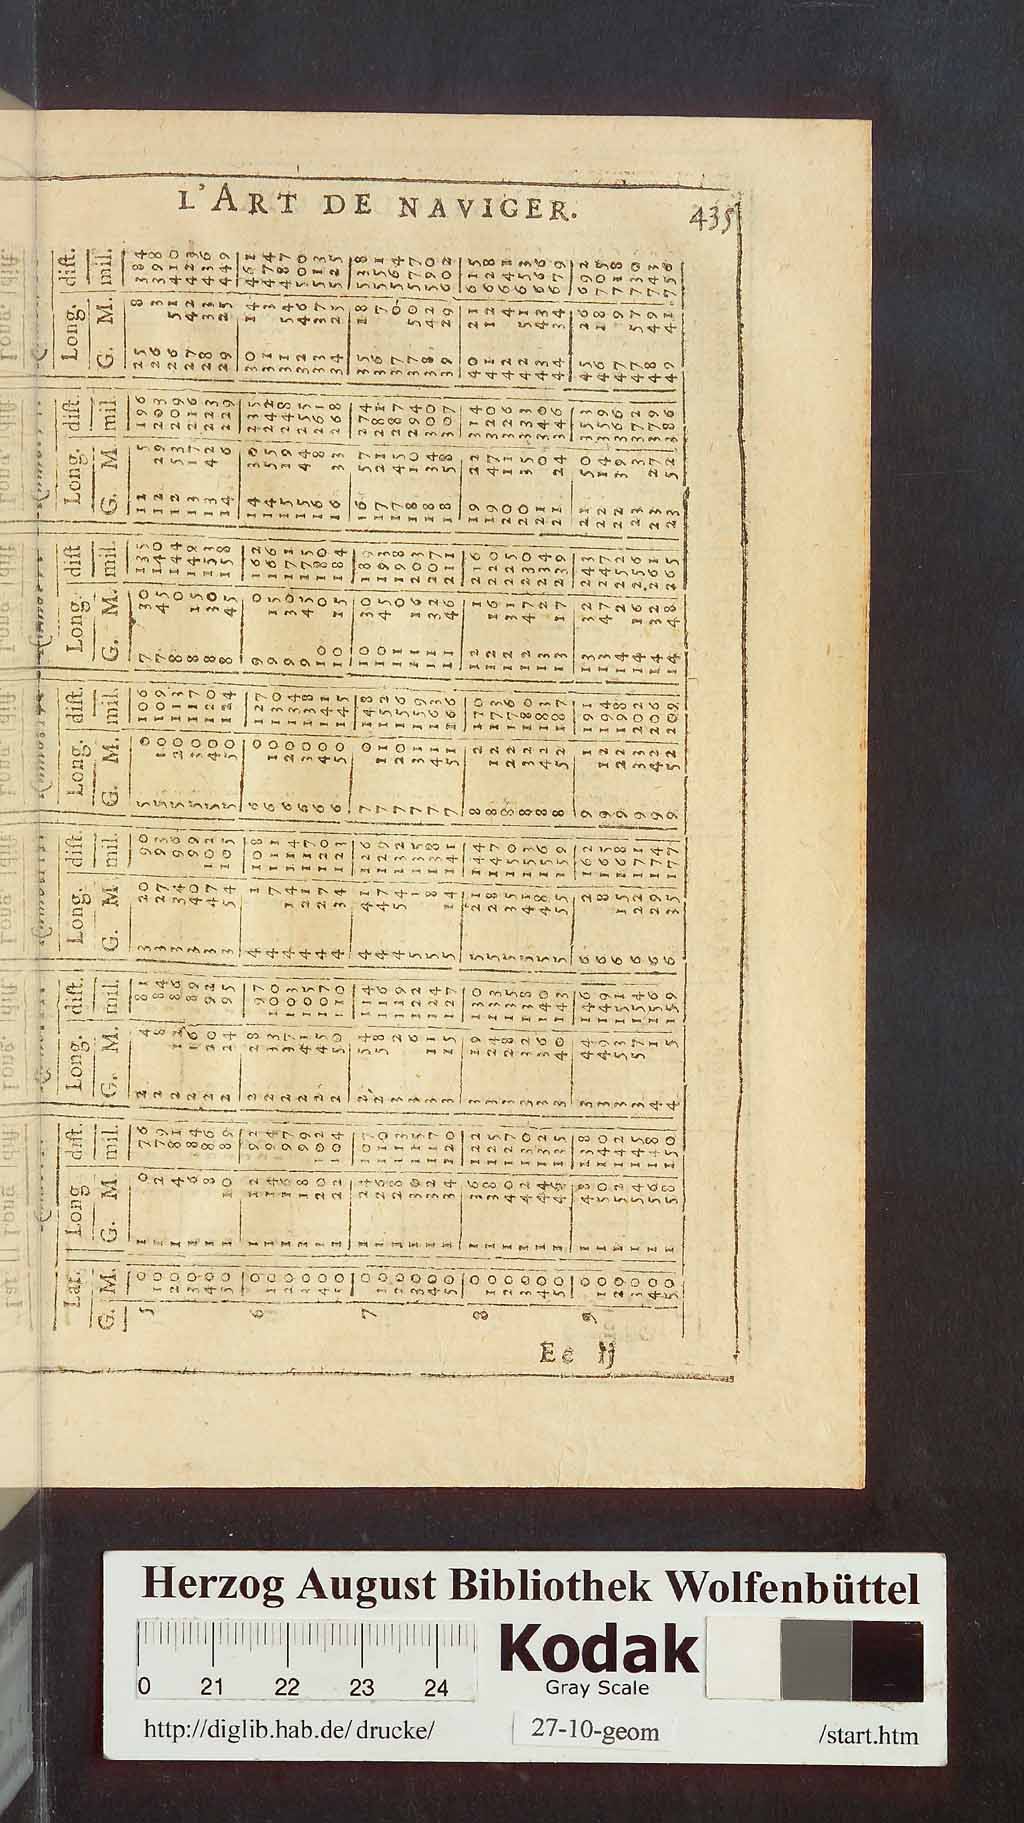 L'ART DE NAVIGER.
435
Lat. Long dist. Long. dist. Long. dist. Long. dist. Long. dist Long. dist Long. dist.
G. M. G. M mil. G. M. mil. G. M mil G. M. mil. G. M. mil. G. M mil G. M. mil.
5 0 1 0 76 2 4 81 3 20 90 5 0 106 7 30 135 12 5 196 25 8 384
10 1 2 79 2 8 84 3 27 93 5 10 109 7 45 140 12 29 203 26 3 398
20 1 4 81 2 12 86 3 34 96 5 20 113 8 0 144 12 53 209 26 51 410
30 1 6 84 2 16 89 3 40 99 5 30 117 8 15 149 13 17 216 27 42 423
40 1 8 86 2 20 92 3 47 102 5 40 120 8 30 153 13 42 223 28 33 436
50 1 10 89 2 24 95 3 54 105 5 50 124 8 45 158 14 6 229 29 25 449
6 0 1 12 92 2 28 97 4 1 108 6 0 127 9 0 162 14 30 235 30 14 461
10 1 14 94 2 33 100 4 7 111 6 10 130 9 15 166 14 55 242 31 3 474
20 1 16 97 2 37 103 4 14 114 6 20 134 9 30 171 15 19 248 31 54 487
30 1 18 99 2 41 105 4 21 117 6 30 138 9 45 175 15 44 255 32 46 500
40 1 20 102 2 45 107 4 27 120 6 40 141 10 0 180 16 8 261 33 37 513
50 1 22 104 2 50 110 4 34 123 6 50 145 10 15 184 16 33 268 34 25 525
7 0 1 24 107 2 54 114 4 41 126 7 0 148 10 30 189 16 57 274 35 18 538
10 1 26 110 2 58 116 4 47 129 7 11 152 10 45 193 17 21 281 36 7 551
20 1 28 113 3 2 119 4 54 132 7 20 156 11 0 198 17 45 287 37 0 564
30 1 30 115 3 6 122 5 1 135 7 31 159 11 16 203 18 10 294 37 50 577
40 1 32 117 3 11 124 5 8 138 7 41 163 11 32 207 18 34 300 38 42 590
50 1 34 120 3 15 127 5 14 141 7 51 166 11 46 211 18 58 307 39 29 602
8 0 1 36 122 3 19 130 5 21 144 8 2 170 12 1 216 19 22 314 40 21 615
10 1 38 125 3 24 133 5 28 147 8 12 173 12 16 220 19 47 320 41 12 628
20 1 40 127 3 28 135 5 35 150 8 22 176 12 31 225 20 11 326 42 4 641
30 1 42 130 3 32 138 5 41 153 8 32 180 12 47 230 20 35 333 42 51 653
40 1 44 132 3 36 140 5 48 156 8 42 183 13 2 234 21 0 340 43 43 666
50 1 46 135 3 40 143 5 55 159 8 52 187 13 17 239 21 24 346 44 34 679
9 0 1 48 138 3 44 146 6 2 162 9 1 191 13 32 243 21 50 353 45 26 692
10 1 50 140 3 49 149 6 8 165 9 12 194 13 47 247 22 14 359 46 18 705
20 1 52 142 3 53 151 6 15 168 9 22 198 14 2 252 22 39 366 47 9 718
30 1 54 145 3 57 154 6 22 171 9 33 202 14 16 256 23 3 372 47 57 730
40 1 56 148 4 1 156 6 29 174 9 42 206 14 32 261 23 27 379 48 49 743
50 1 58 150 4 5 159 6 35 177 9 52 209 14 48 265 23 52 386 49 41 756
Ee ij
Herzog August Bibliothek Wolfenbüttel
0 21 22 23 24
Kodak
Gray Scale
http://diglib.hab.de/ drucke/ 27-10-geom /start.htm